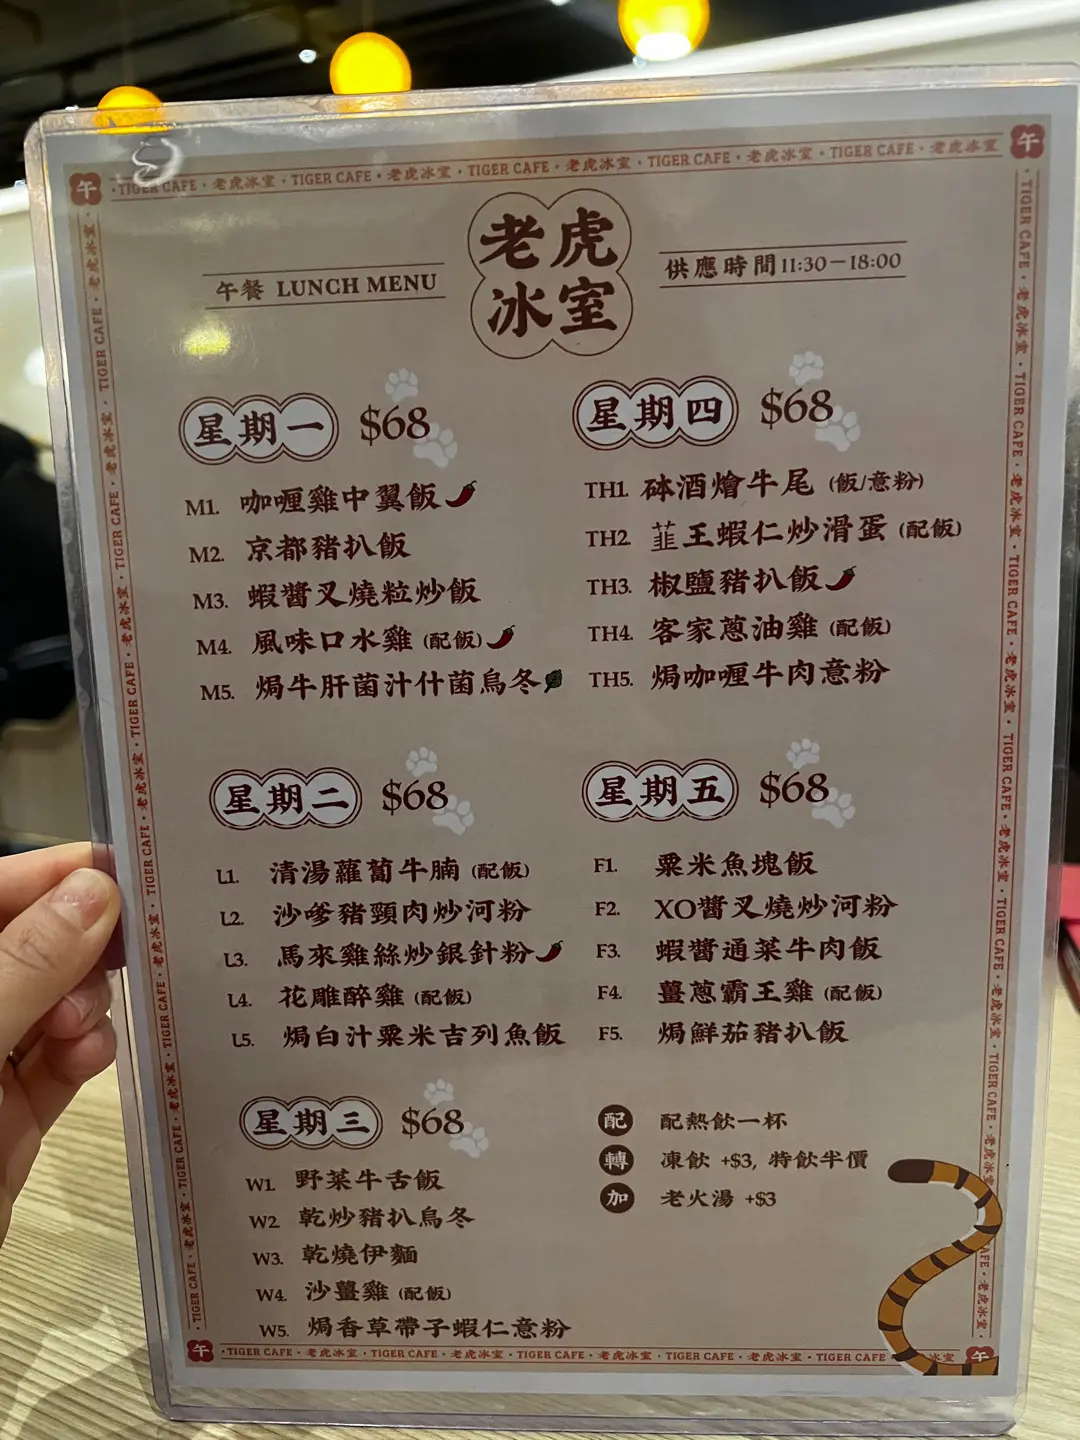 午 · TIGER CAFE · 老虎冰室 · TIGER CAFE · 老虎冰室 · TIGER CAFE · 老虎冰室 · TIGER CAFE · 老虎冰室 · TIGER CAFE · 老虎冰室 午
老虎
冰室
午餐 LUNCH MENU
供應時間11:30-18:00
星期一 $68
M1. 咖喱雞中翼飯
M2. 京都豬扒飯
M3. 蝦醬叉燒粒炒飯
M4. 風味口水雞 (配飯)
M5. 焗牛肝菌汁什菌烏冬
星期二 $68
L1. 清湯蘿蔔牛腩 (配飯)
L2. 沙嗲豬頸肉炒河粉
L3. 馬來雞絲炒銀針粉
L4. 花雕醉雞 (配飯)
L5. 焗白汁粟米吉列魚飯
星期三 $68
W1. 野菜牛舌飯
W2. 乾炒豬扒烏冬
W3. 乾燒伊麵
W4. 沙薑雞 (配飯)
W5. 焗香草帶子蝦仁意粉
星期四 $68
TH1. 砵酒燴牛尾 (飯/意粉)
TH2. 韮王蝦仁炒滑蛋 (配飯)
TH3. 椒鹽豬扒飯
TH4. 客家蔥油雞 (配飯)
TH5. 焗咖喱牛肉意粉
星期五 $68
F1. 粟米魚塊飯
F2. XO醬叉燒炒河粉
F3. 蝦醬通菜牛肉飯
F4. 薑蔥霸王雞 (配飯)
F5. 焗鮮茄豬扒飯
配 配熱飲一杯
轉 凍飲 +$3, 特飲半價
加 老火湯 +$3
午 · TIGER CAFE · 老虎冰室 · TIGER CAFE · 老虎冰室 · TIGER CAFE · 老虎冰室 · TIGER CAFE · 老虎冰室 · TIGER CAFE 冰室 午